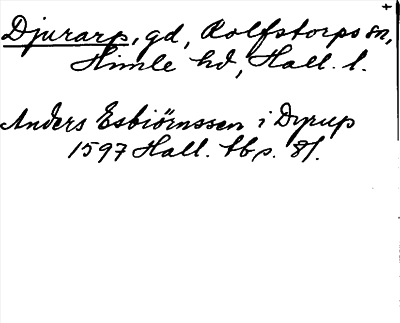 +
Djurarp, gd, Rolfstorps sn,
Himle hd, Hall. l.
Anders Esbiörnssen i Dyrup
1597 Hall. tb s. 81.